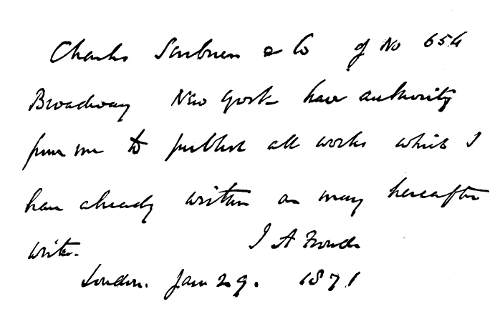 Charles Scribner & Co of No 654
Broadway New York have authority
from me to publish all works which I
have already written or may hereafter
write.
J A Froude
London. Jan 29. 1871